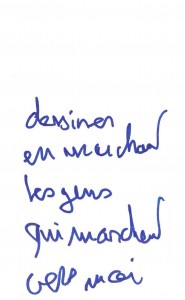 dessiner
en marchant
les gens
qui marchent
vers moi